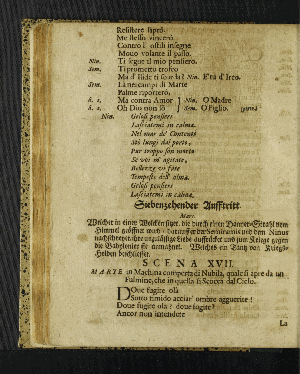 Resistere saprò.
Me stesso vincerò
Contro l' ostili insegne
Movo volante il passo.
Nin. Ti segue il mio pensiero.
Sem. Ti prometto trofeo
Ma d' Ilde ti scorda? Nin. E'ra d' Irco.
Sem. Là nei campi di Marte
Palme riportero.
à 2. Ma contra Amor Nin. O Madre
à 2. Oh Dio non lò Sem. O Figlio. (parte)
Nin. Gelosi pensieri
Lasciatemi in calma.
Nel mar de' Contenti
lungi dal porto,
Pur troppo son
Se voi m' agitate,
Bellezze
Tempeste dell' alma.
Gelosi pensieri
Lasciatemi in calma.
Siebenzehender Aufftritt.
Mars.
Welcher in einer Wolcken sitzt, die durch einen Donner-Strahl vom
Himmel geöffnet wird / der die Semiramis und dem Ninus
nachsehend ihre unzulässige Liebe auffrücket und zum Kriege gegen
die Babylonier sie anmahnet. Welches ein Tantz von Kriegs-
Helden beschliesset.
SCENA XVII.
MARTE in Machina comperta di Nubila, quale si apre da un
Fulmine, che in questa si Scocca dal Cielo.
Doue fugite olà
Sotto timido acciar' ombre agguerite!
Doue fugite ola? doue fugite?
Ancor non intendete
La